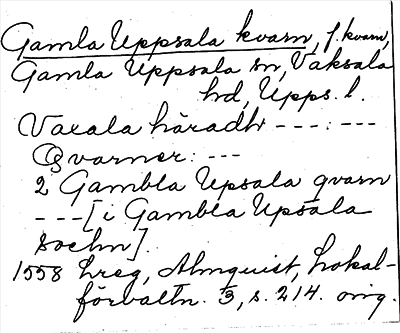 Gamla Uppsala kvarn, f. kvarn,
Gamla Uppsala sn, Vaksala
hd, Upps. l.
Vaxala häradh ---:---
Qvarner: ---
2 Gambla Upsala qvarn
---[i Gambla Upsala
sochn].
1558 Lreg, Almquist, Lokal-
förvaltn. 1/3, s. 214. orig.